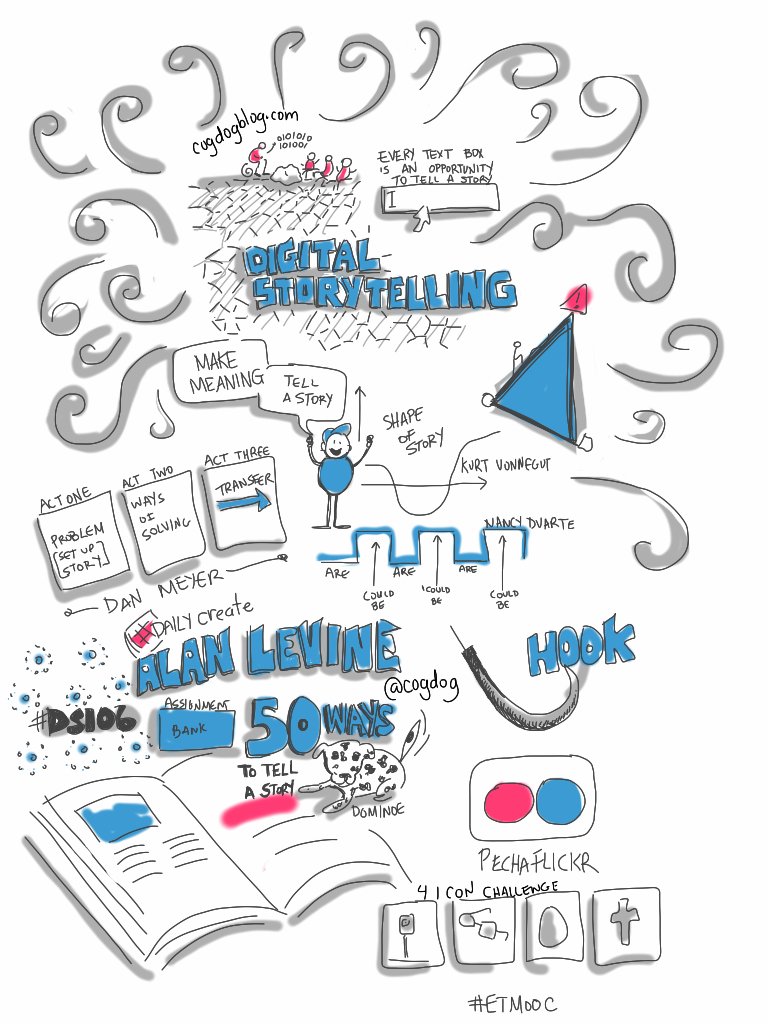 cogdogblog.com
0101010
101001
EVERY TEXT BOX
IS AN OPPORTUNITY
TO TELL A STORY
I
DIGITAL
STORYTELLING
!
MAKE
MEANING
TELL
A STORY
SHAPE
OF
STORY
KURT VONNEGUT
ACT ONE
PROBLEM
[SET UP
STORY]
ACT TWO
WAYS
OF
SOLVING
ACT THREE
TRANSFER
DAN MEYER
NANCY DUARTE
ARE
ARE
ARE
COULD
BE
COULD
BE
COULD
BE
#DAILY CREATE
ALAN LEVINE
@cogdog
HOOK
#DS106
ASSIGNMENT
BANK
50 WAYS
TO TELL
A STORY
DOMINOE
PECHAFLICKR
4 ICON CHALLENGE
#ETMOOC